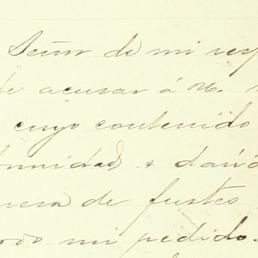 Señor de mi resp
de acusar á M.
cuyo contenido
ormidad & dán
resa de fustes
mi pedido.